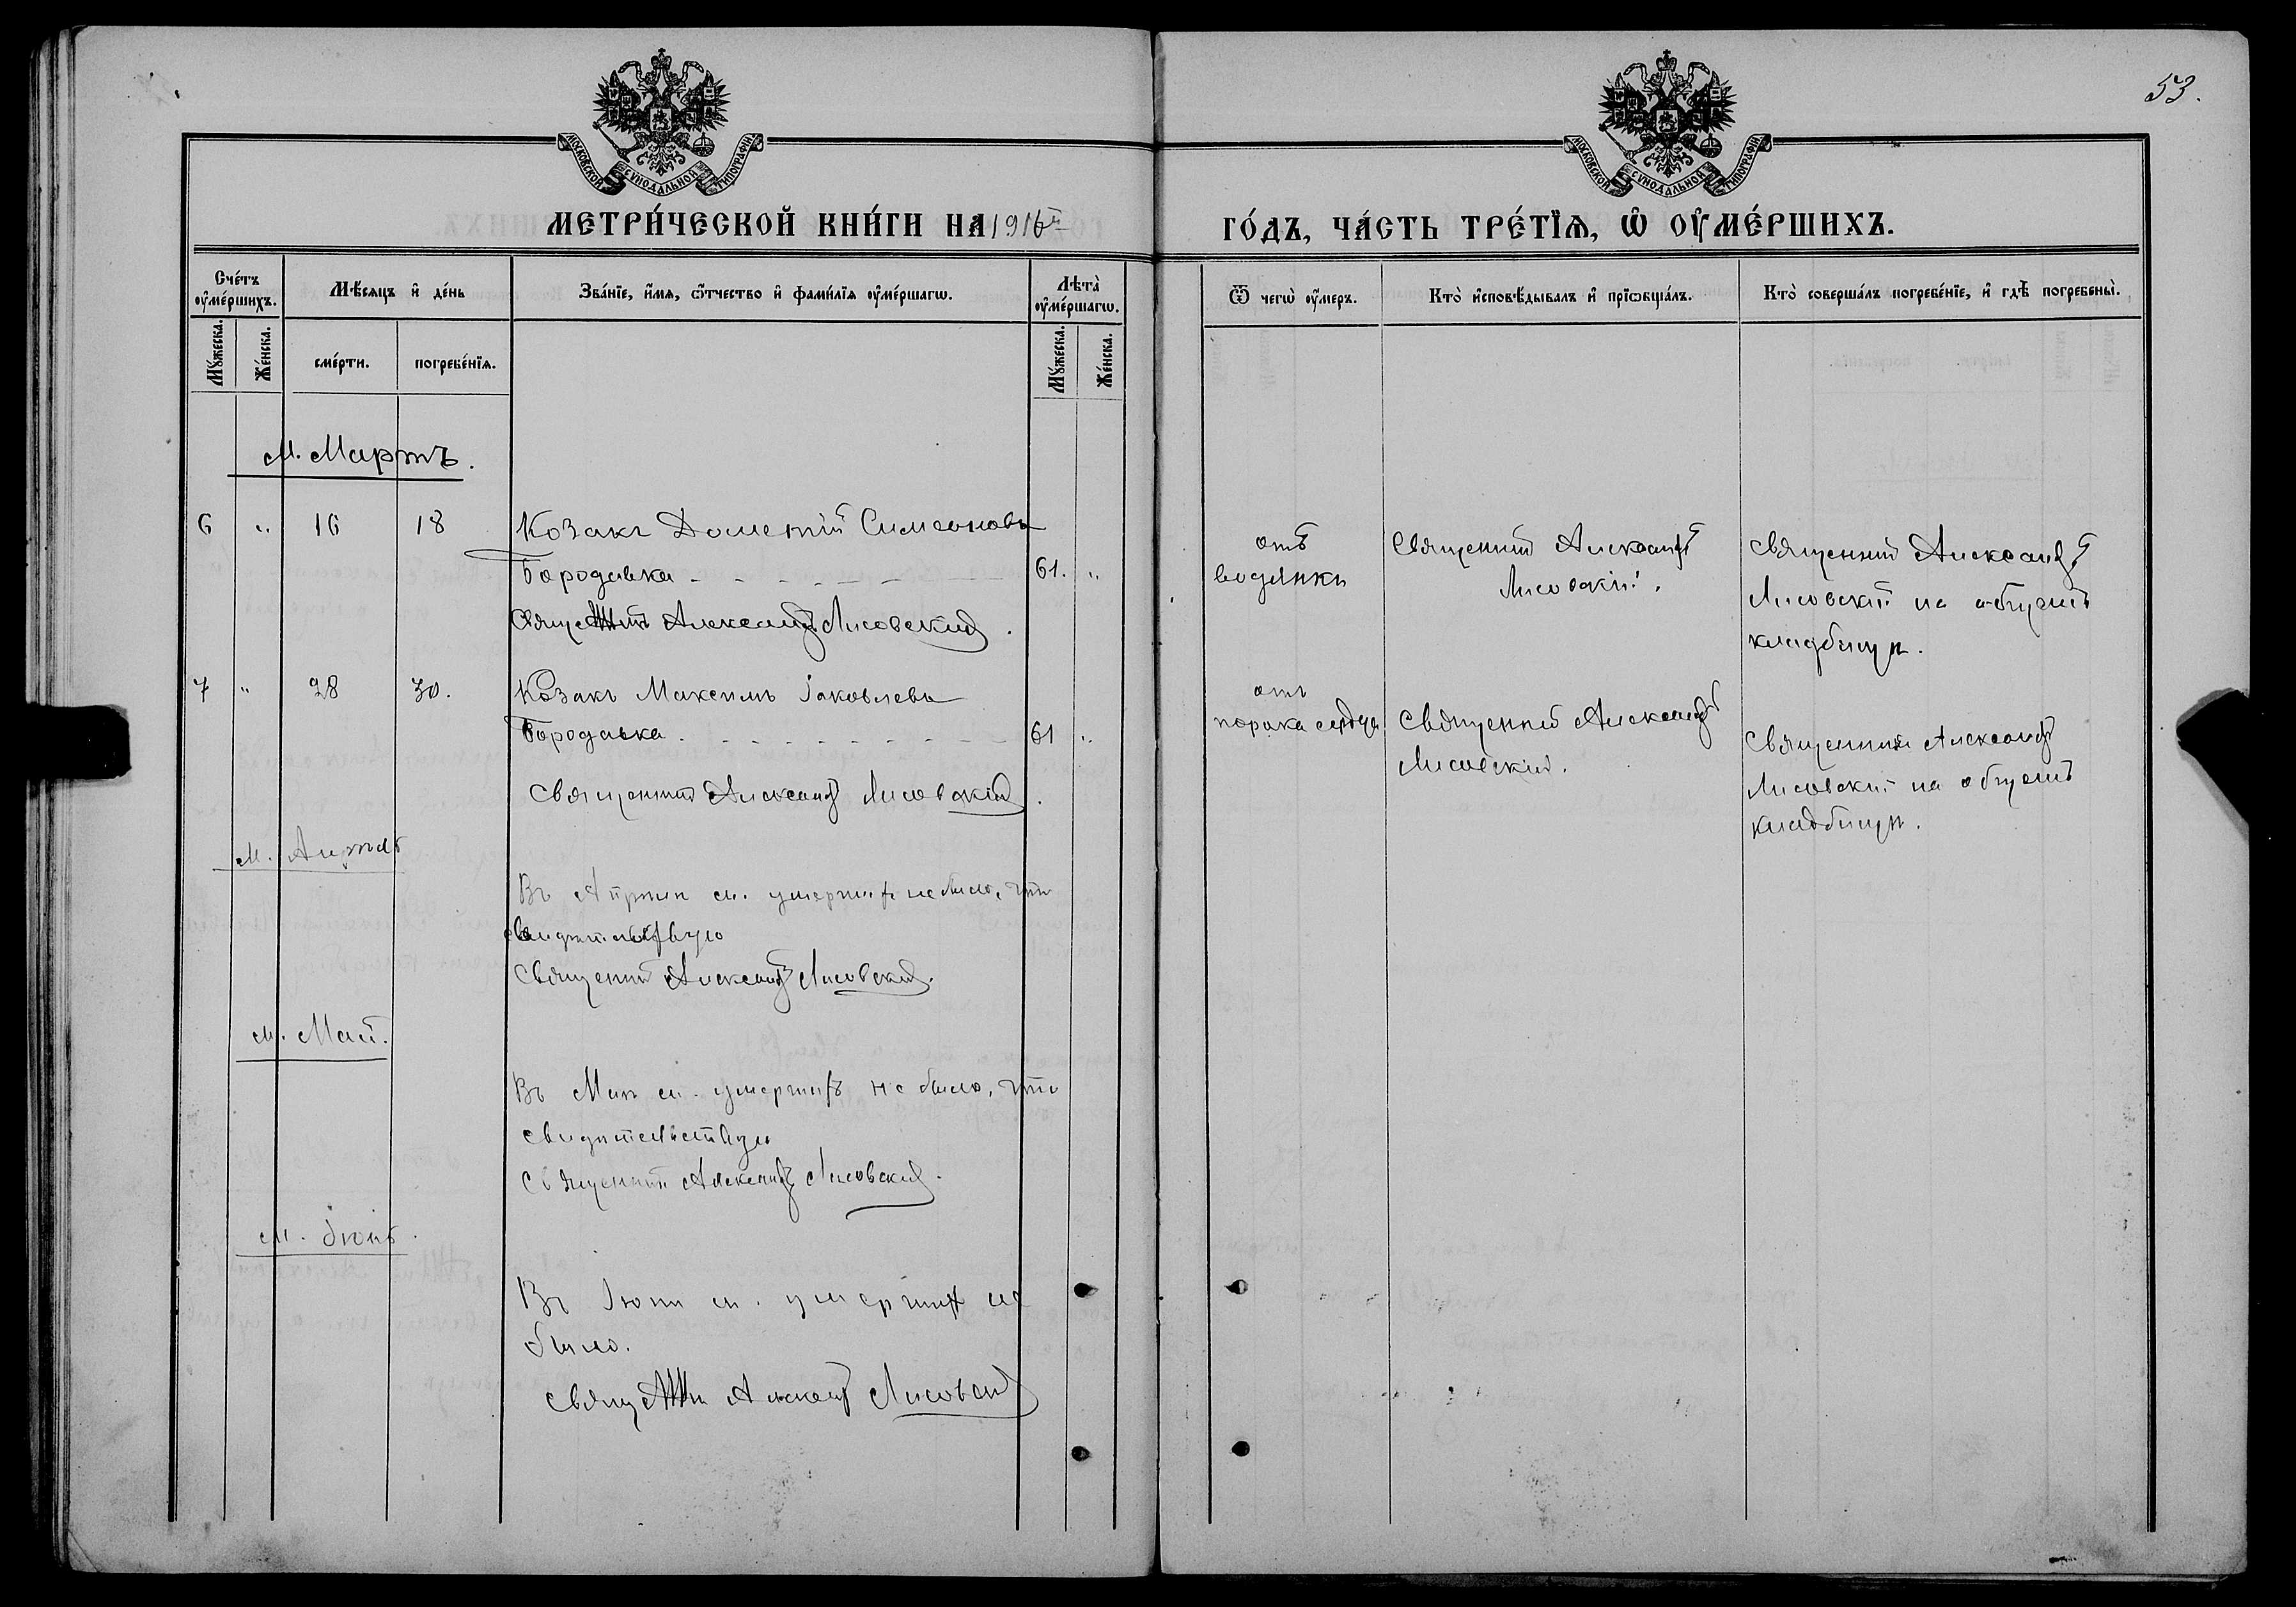 53.
МОСКОВСКОЙ СУНОДАЛЬНОЙ ТИПОГРАФІИ
МОСКОВСКОЙ СУНОДАЛЬНОЙ ТИПОГРАФІИ
МЕТРИ́ЧЕСКОЙ КНИ́ГИ НА 1916 й
ГО́ДЪ, ЧА́СТЬ ТРЕ́ТЇѦ, Ѽ ОУ҆МЕ́РШИХЪ.
Сче́тъ оу҆ме́ршихъ.
Мѣ́сяцъ и҆ де́нь
Зва́нїе, и҆́мя, ѻ҆́тчество и҆ фами́лїя оу҆ме́ршагѡ.
Лѣта̀ оу҆ме́ршагѡ.
Ѿ чегѡ̀ оу҆́меръ.
Кто̀ и҆сповѣ́дывалъ и҆ прїѡбща́лъ.
Кто̀ соверша́лъ погребе́нїе, и҆ гдѣ̀ погребены̀.
Мꙋ́жеска.
Же́нска.
сме́рти.
погребе́нїя.
Мꙋ́жеска.
Же́нска.
М. Мартъ.
6 " 16 18 Козакъ Дометій Симеоновъ
Бородавка 61. "
Священникъ Александръ Лисовскій.
отъ
водянки
Священникъ Александръ
Лисовскій.
Священникъ Александръ
Лисовскій на общемъ
кладбищѣ.
7 " 28 30. Козакъ Максимъ Іаковлевъ
Бородавка 61 "
Священникъ Александръ Лисовскій.
отъ
порока сердца
Священникъ Александръ
Лисовскій.
Священникъ Александръ
Лисовскій на общемъ
кладбищѣ.
М. Апрѣль
Въ Апрѣлѣ м. умершихъ не было, что
свидѣтельствую
Священникъ Александръ Лисовскій.
М. Май.
Въ Маѣ м. умершихъ не было, что
свидѣтельствую
Священникъ Александръ Лисовскій.
М. Іюнь.
Въ Іюнѣ м. умершихъ не
было.
Священникъ Александръ Лисовскій